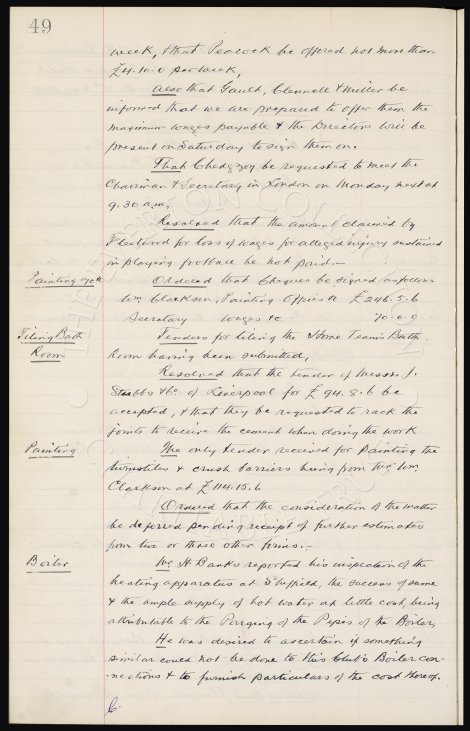 49
week, & that Peacock be offered not more than
£4.10.0 per week,
Also that Gault, Clennell & Miller be
informed that we are prepared to offer them the
maximum wages payable & the Directors will be
present on Saturday to sign them on.
That Chedgzoy be requested to meet the
Chairman & Secretary in London on Monday next at
9.30 a.m.
Resolved that the amount claimed by
Fleetwood for loss of wages for alleged injury sustained
in playing football be not paid.—
Painting Ordered that Cheques be signed as follows
Wm Clarkson, Painting Offices &c £246.5.6
Secretary Wages &c 70.0.0
Tiling Bath Tenders for tiling the Home Team's Bath
Room Room having been submitted,
Resolved that the tender of Messrs. J.
Stubbs & Co of Liverpool for £94.8.6 be
accepted, & that they be requested to rack the
joints to receive the cement when doing the work
Painting The only tender received for painting the
turnstiles & crush barriers being from Mr Wm
Clarkson at £114.15.6
Ordered that the consideration of the matter
be deferred pending receipt of further estimates
from two or three other firms.—
Boiler Mr H Banks reported his inspection of the
heating apparatus at Sheffield, the success of same
& the ample supply of hot water at little cost, being
attributable to the Parging of the Pipes of the Boiler,
He was desired to ascertain if something
similar could not be done to this Club's Boiler con-
-nections & to furnish particulars of the cost thereof.